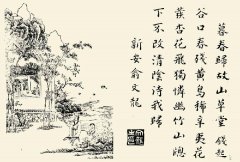 暮春歸故山草堂 錢起
谷口春殘黃鳥稀辛夷花
盡杏花飛獨憐幽竹山窓
下不改清陰待我歸
新安俞文龍